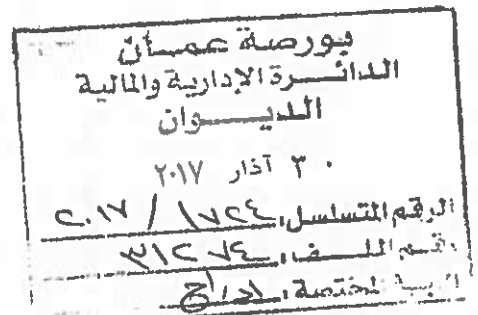 بورصة عمان
الدائرة الإدارية والمالية
الديوان
٣٠ آذار ٢٠١٧
الرقم المتسلسل: ١٧٢٤ / ٢٠١٧
رقم الملف: ٣١٢٧٤
الجهة المختصة: